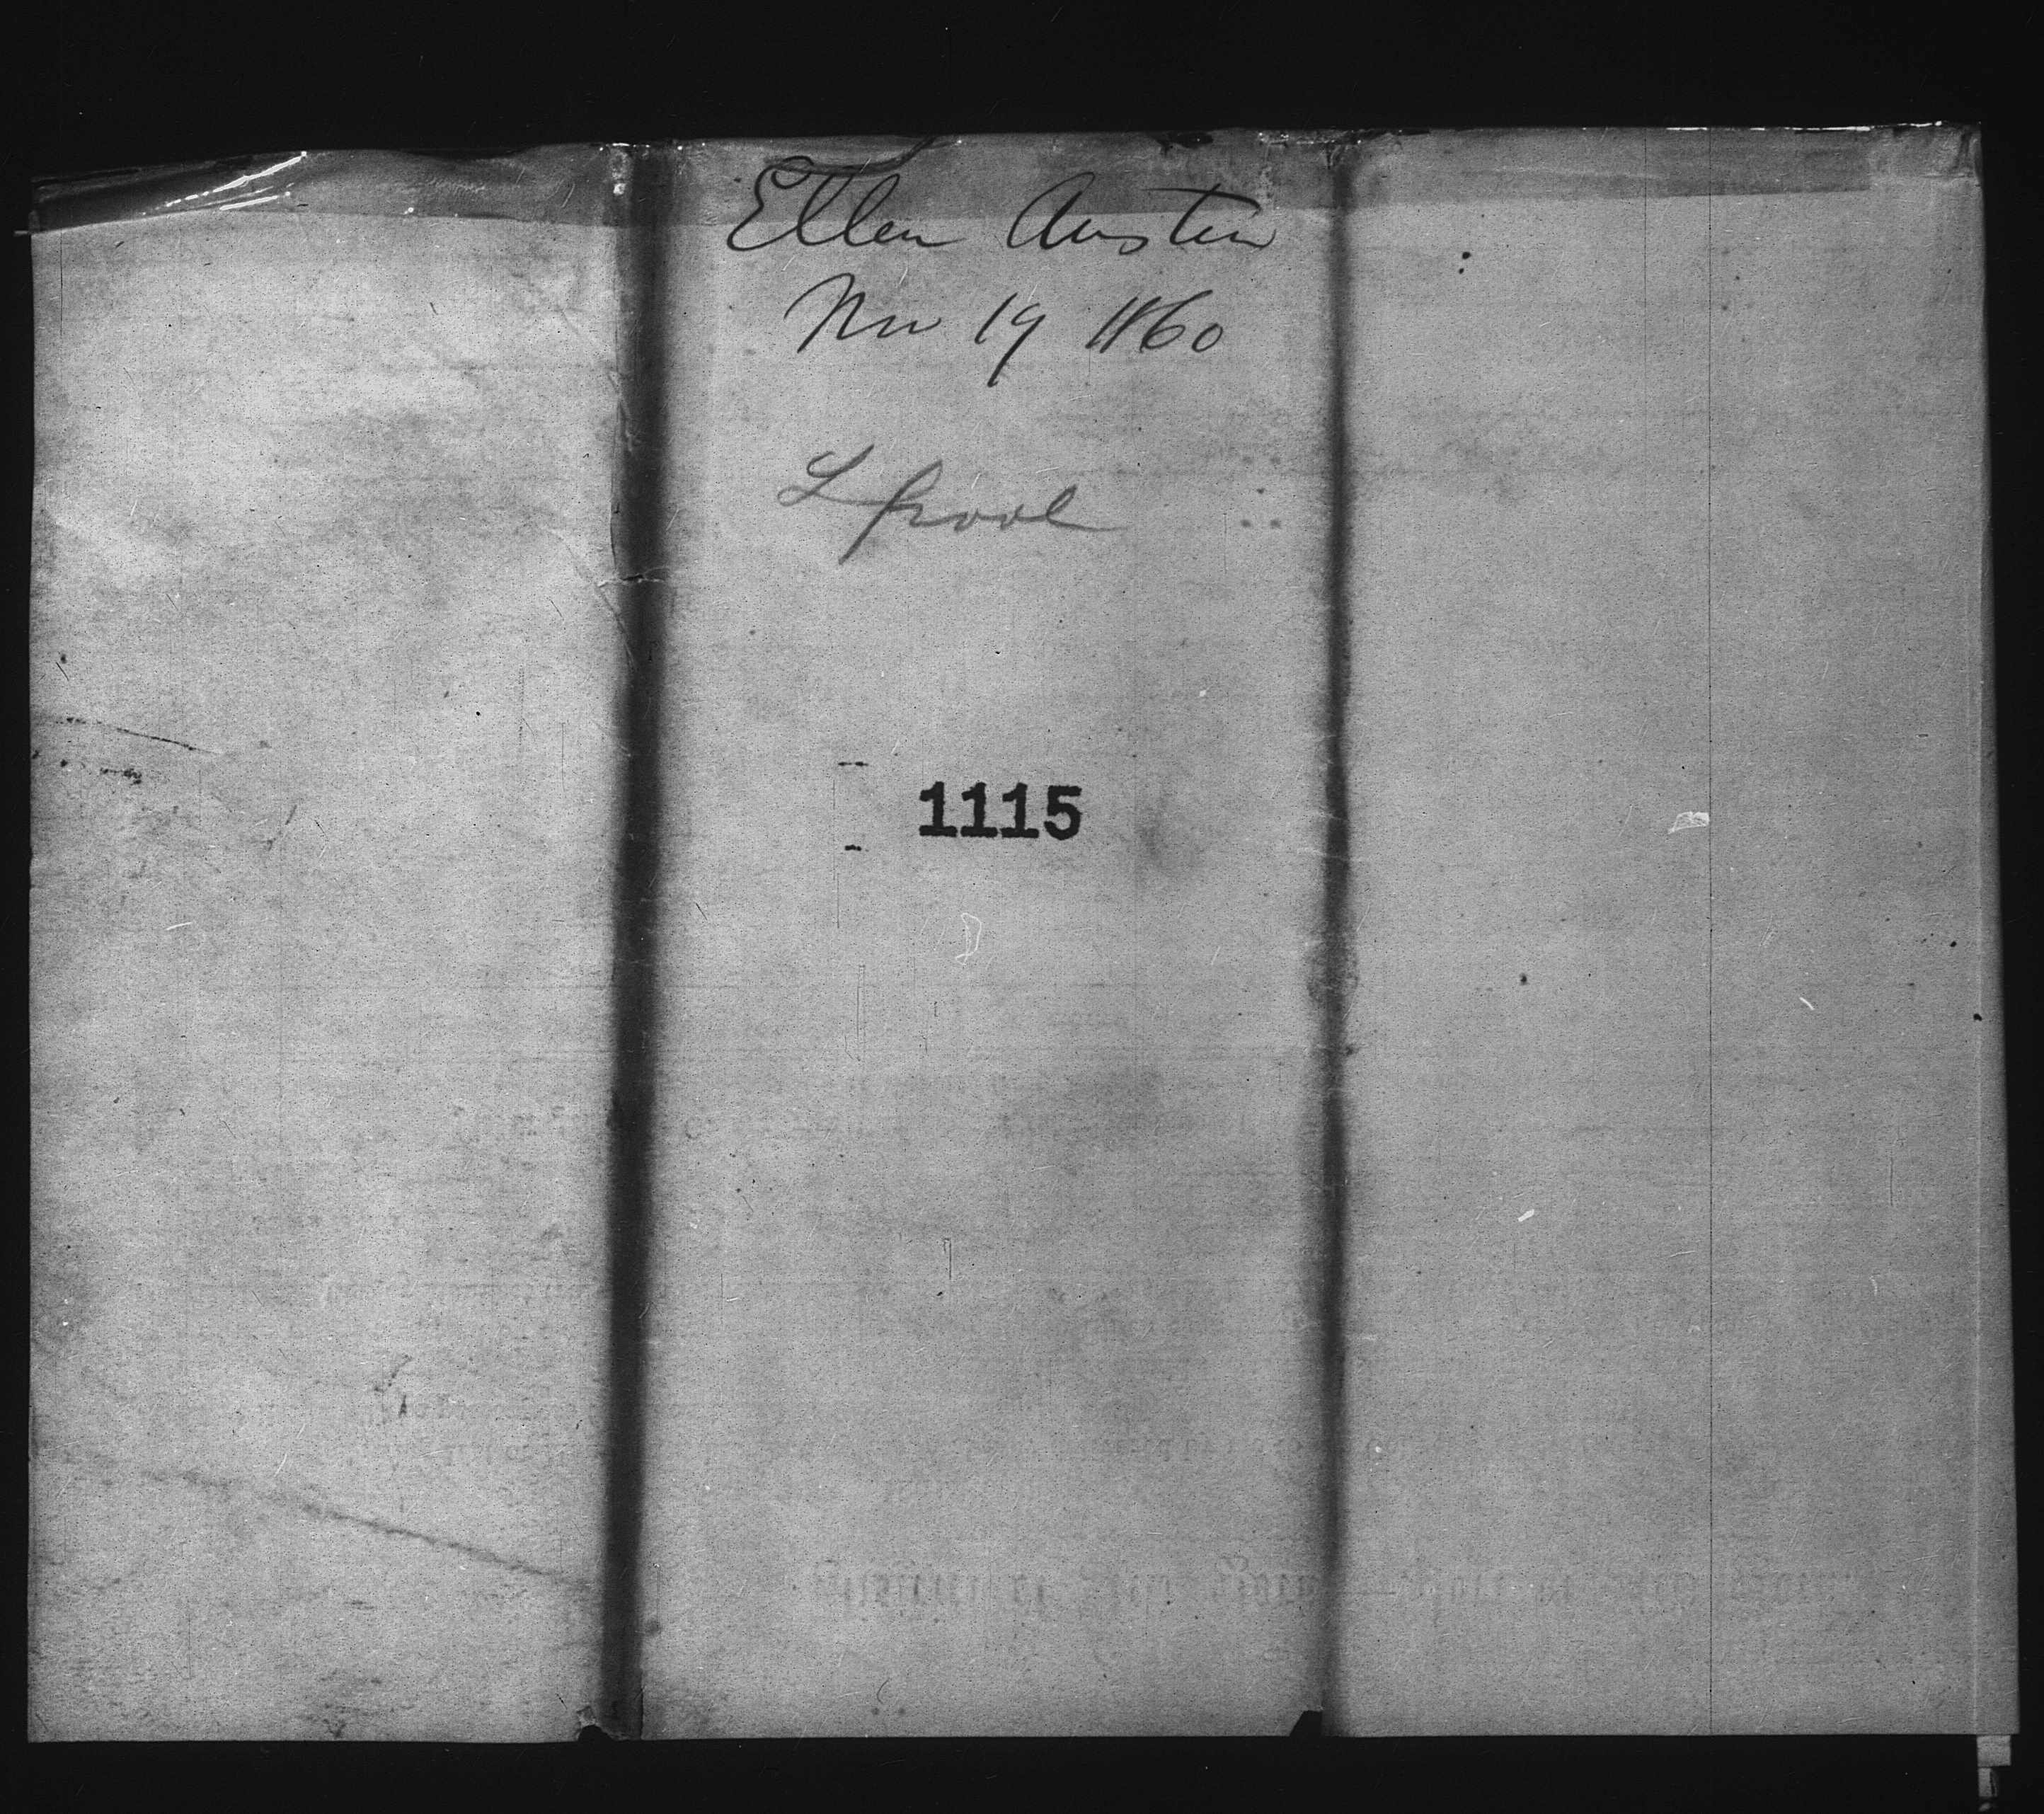 Ellen Austin
Nov 19 1860
Lpool
1115